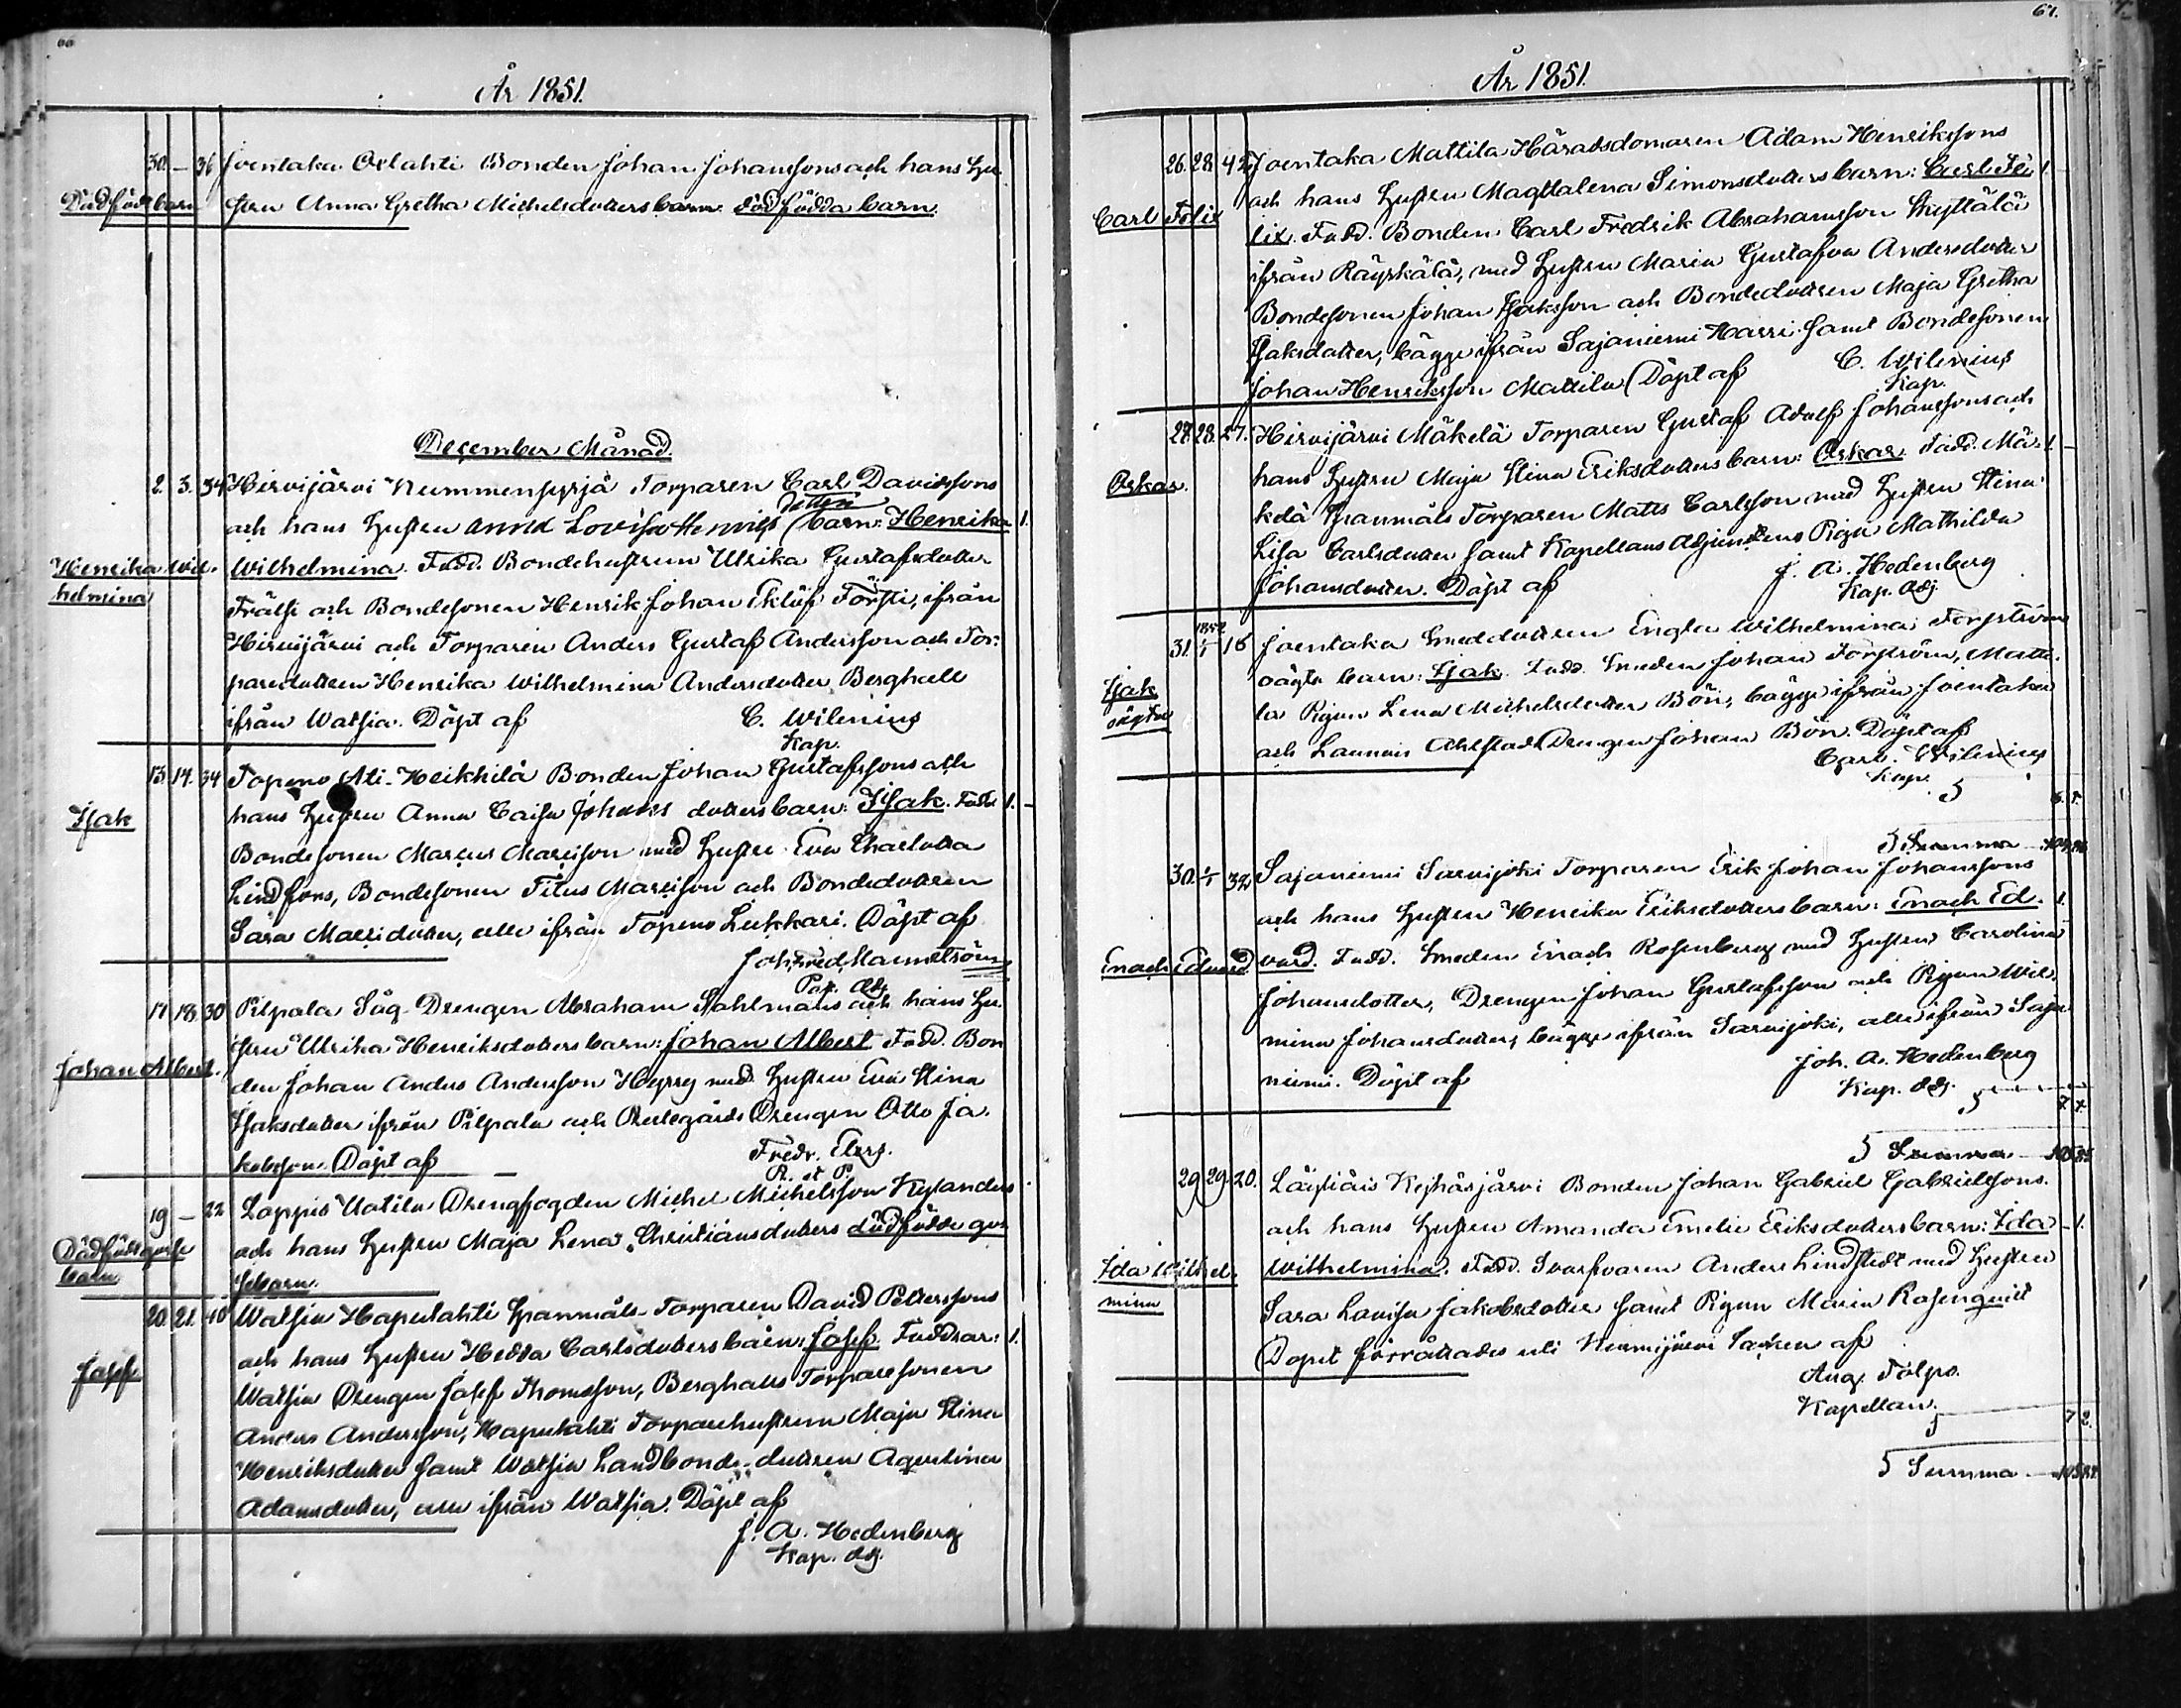 66
År 1851.
30. — 36 Joentaka Orlahti Bonden Johan Johanssons och hans Hu-
Dödfödt barn stru Anna Gretha Michelsdotters barn dödfödda barn.
December Månad.
2. 3. 34 Hirvijärvi Nummensyrjä Torparen Carl Davidssons
och hans Hustru Anna Lovisa Henriks dotters barn: Henrika 1.
Henrika Wil- Wilhelmina. Fadd. Bondehustrun Ulrika Gustafsdotter
helmina Frälsi och Bondesonen Henrik Johan Eklöf Försti, ifrån
Hirvijärvi och Torparen Anders Gustaf Andersson och Tor-
paredottren Henrika Wilhelmina Andersdotter Berghäll
ifrån Watsia. Döpt af C. Wilenius
Kap.
13. 14. 34 Topeno Ali-Heikkilä Bonden Johan Gustafssons och
Isak hans Hustru Anna Caisa Johans dotters barn: Isak. Fadd. 1. —
Bondesonen Marcus Marcisson med Hustru Eva Charlotta
Lindfors, Bondesonen Titus Marcisson och Bondedottren
Sara Marcidotter, alle ifrån Topeno Lukkari. Döpt af
Joh. Fred. Mannström
Past. Adj.
17 18 30 Pilpala Såg-Drengen Abraham Sahlmans och hans Hu-
stru Ulrika Henriksdotters barn: Johan Albert. Fadd. Bon
Johan Albert. den Johan Anders Andersson Heyrey med Hustru Eva Stina
Isaksdotter ifrån Pilpala och Drengen Otto Ja-
kobsson. Döpt af Fredr. Elers.
P. et P.
19 — 22 Loppis Uotila Drengfogden Michel Michelsson Kylanders
Dödfödt gosse och hans Hustru Maja Lena Christiansdotters dödfödde gos
barn sebarn.
20. 21. 40 Watsia Haputahti Spanmåls-Torparen David Petterssons
och hans Hustru Hedda Carlsdotters barn: Josef. Faddrar: 1.
Josef Watsia Drengen Josef Thomsson, Berghälls Torparesonen
Anders Andersson, Haputahti Torparehustrun Maja Stina
Henriksdotter samt Watsia Landbonde-dottren Agustina
Adamsdotter, alla ifrån Watsia. Döpt af
J. A. Hedenberg
Kap. Adj.
67.
År 1851.
26. 28. 42 Joentaka Mattila Häradsdomaren Adam Henrikssons
och hans Hustru Magdalena Simonsdotters barn: Carl Fe- 1
Carl Felix lix. Fadd. Bonden Carl Fredrik Abrahamsson Kyttälä
ifrån Räyskälä, med Hustru Maria Gustafva Andersdotter
Bondesonen Johan Isaksson och Bondedottren Maja Gretha
Isaksdotter, bägge ifrån Sajaniemi Harri samt Bondesonen
Johan Henriksson Mattila Döpt af C. Wilenius
Kap.
27 28. 27. Hirvijärvi Mäkelä Torparen Gustaf Adolf Johanssons och
Oskar. hans Hustru Maja Stina Eriksdotters barn: Oskar. Fadd. Mä- 1. —
kelä Spanmåls Torparen Matts Carlsson med Hustru Stina
Lisa Carlsdotter samt Kapellans Adjunctens Piga Mathilda
Johansdotter. Döpt af J. A. Hedenberg
Kap. Adj.
1852
31. 1/1 16 Joentaka Smeddottren Engla Wilhelmina Forsström
Isak oägta barn: Isak. Fadd. Smeden Johan Forsström, Matti-
oägta la Pigan Lena Michelsdotter Bön, bägge ifrån Joentaka
och Launois Ahlstad Drengen Johan Bön. Döpt af
Carl Wilenius
Kap.
Summa
30. 1/1 32 Sajaniemi Sarvijoki Torparen Erik Johan Johanssons
och hans Hustru Henrika Eriksdotters barn: Enoch Ed- 1.
Enoch Edvard. vard. Fadd. Smeden Enoch Rosenberg med Hustru Carolina
Johansdotter, Drengen Johan Gustafsson och Pigan Wil-
mina Johansdotter, bägge ifrån Sarvijoki, alle ifrån Saja-
niemi. Döpt af Joh. A. Hedenberg
Kap. Adj.
Summa
29 29. 20. Läyliäis Keihäsjärvi Bonden Johan Gabriel Gabrielssons
och hans Hustru Amanda Emelie Eriksdotters barn: Ida - 1.
Ida Wilhel- Wilhelmina. Fadd. Svarfvaren Anders Lindstedt med Hustru
mina Sara Lovisa Jakobsdotter samt Pigan Maria Rosenqvist
Dopet förrättades uti Nurmijärvi Socken af
Aug. Tölpo.
Kapellan.
7 2.
Summa